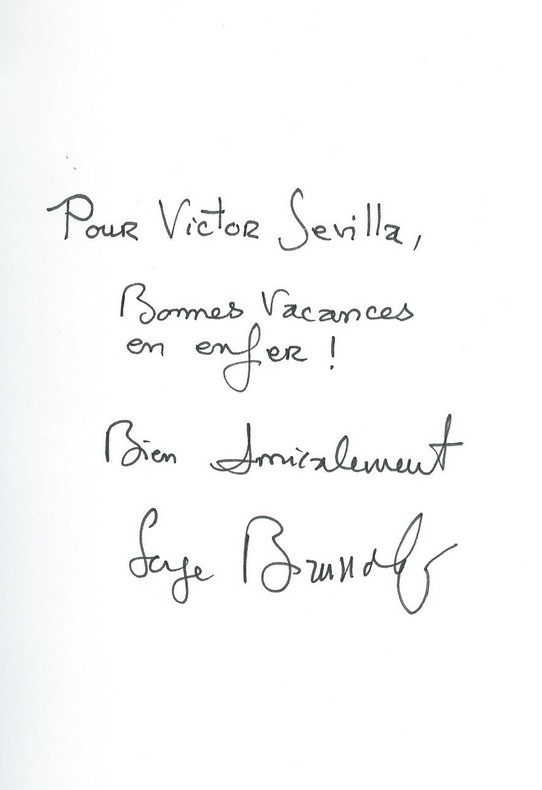 Pour Victor Sevilla,
Bonnes Vacances
en enfer !
Bien Amicalement
Serge Brussolo